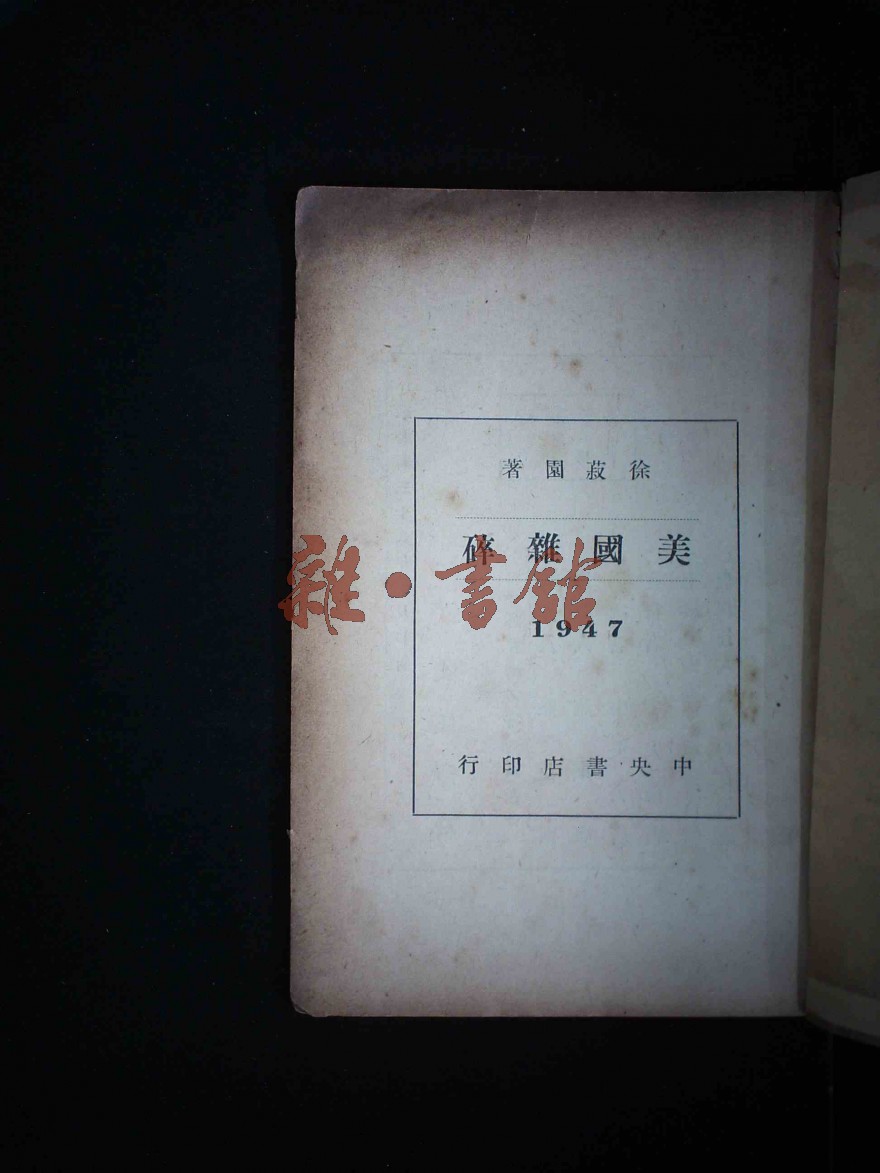 徐菽園著
美國雜碎
1947
中央書店印行
雜·書館